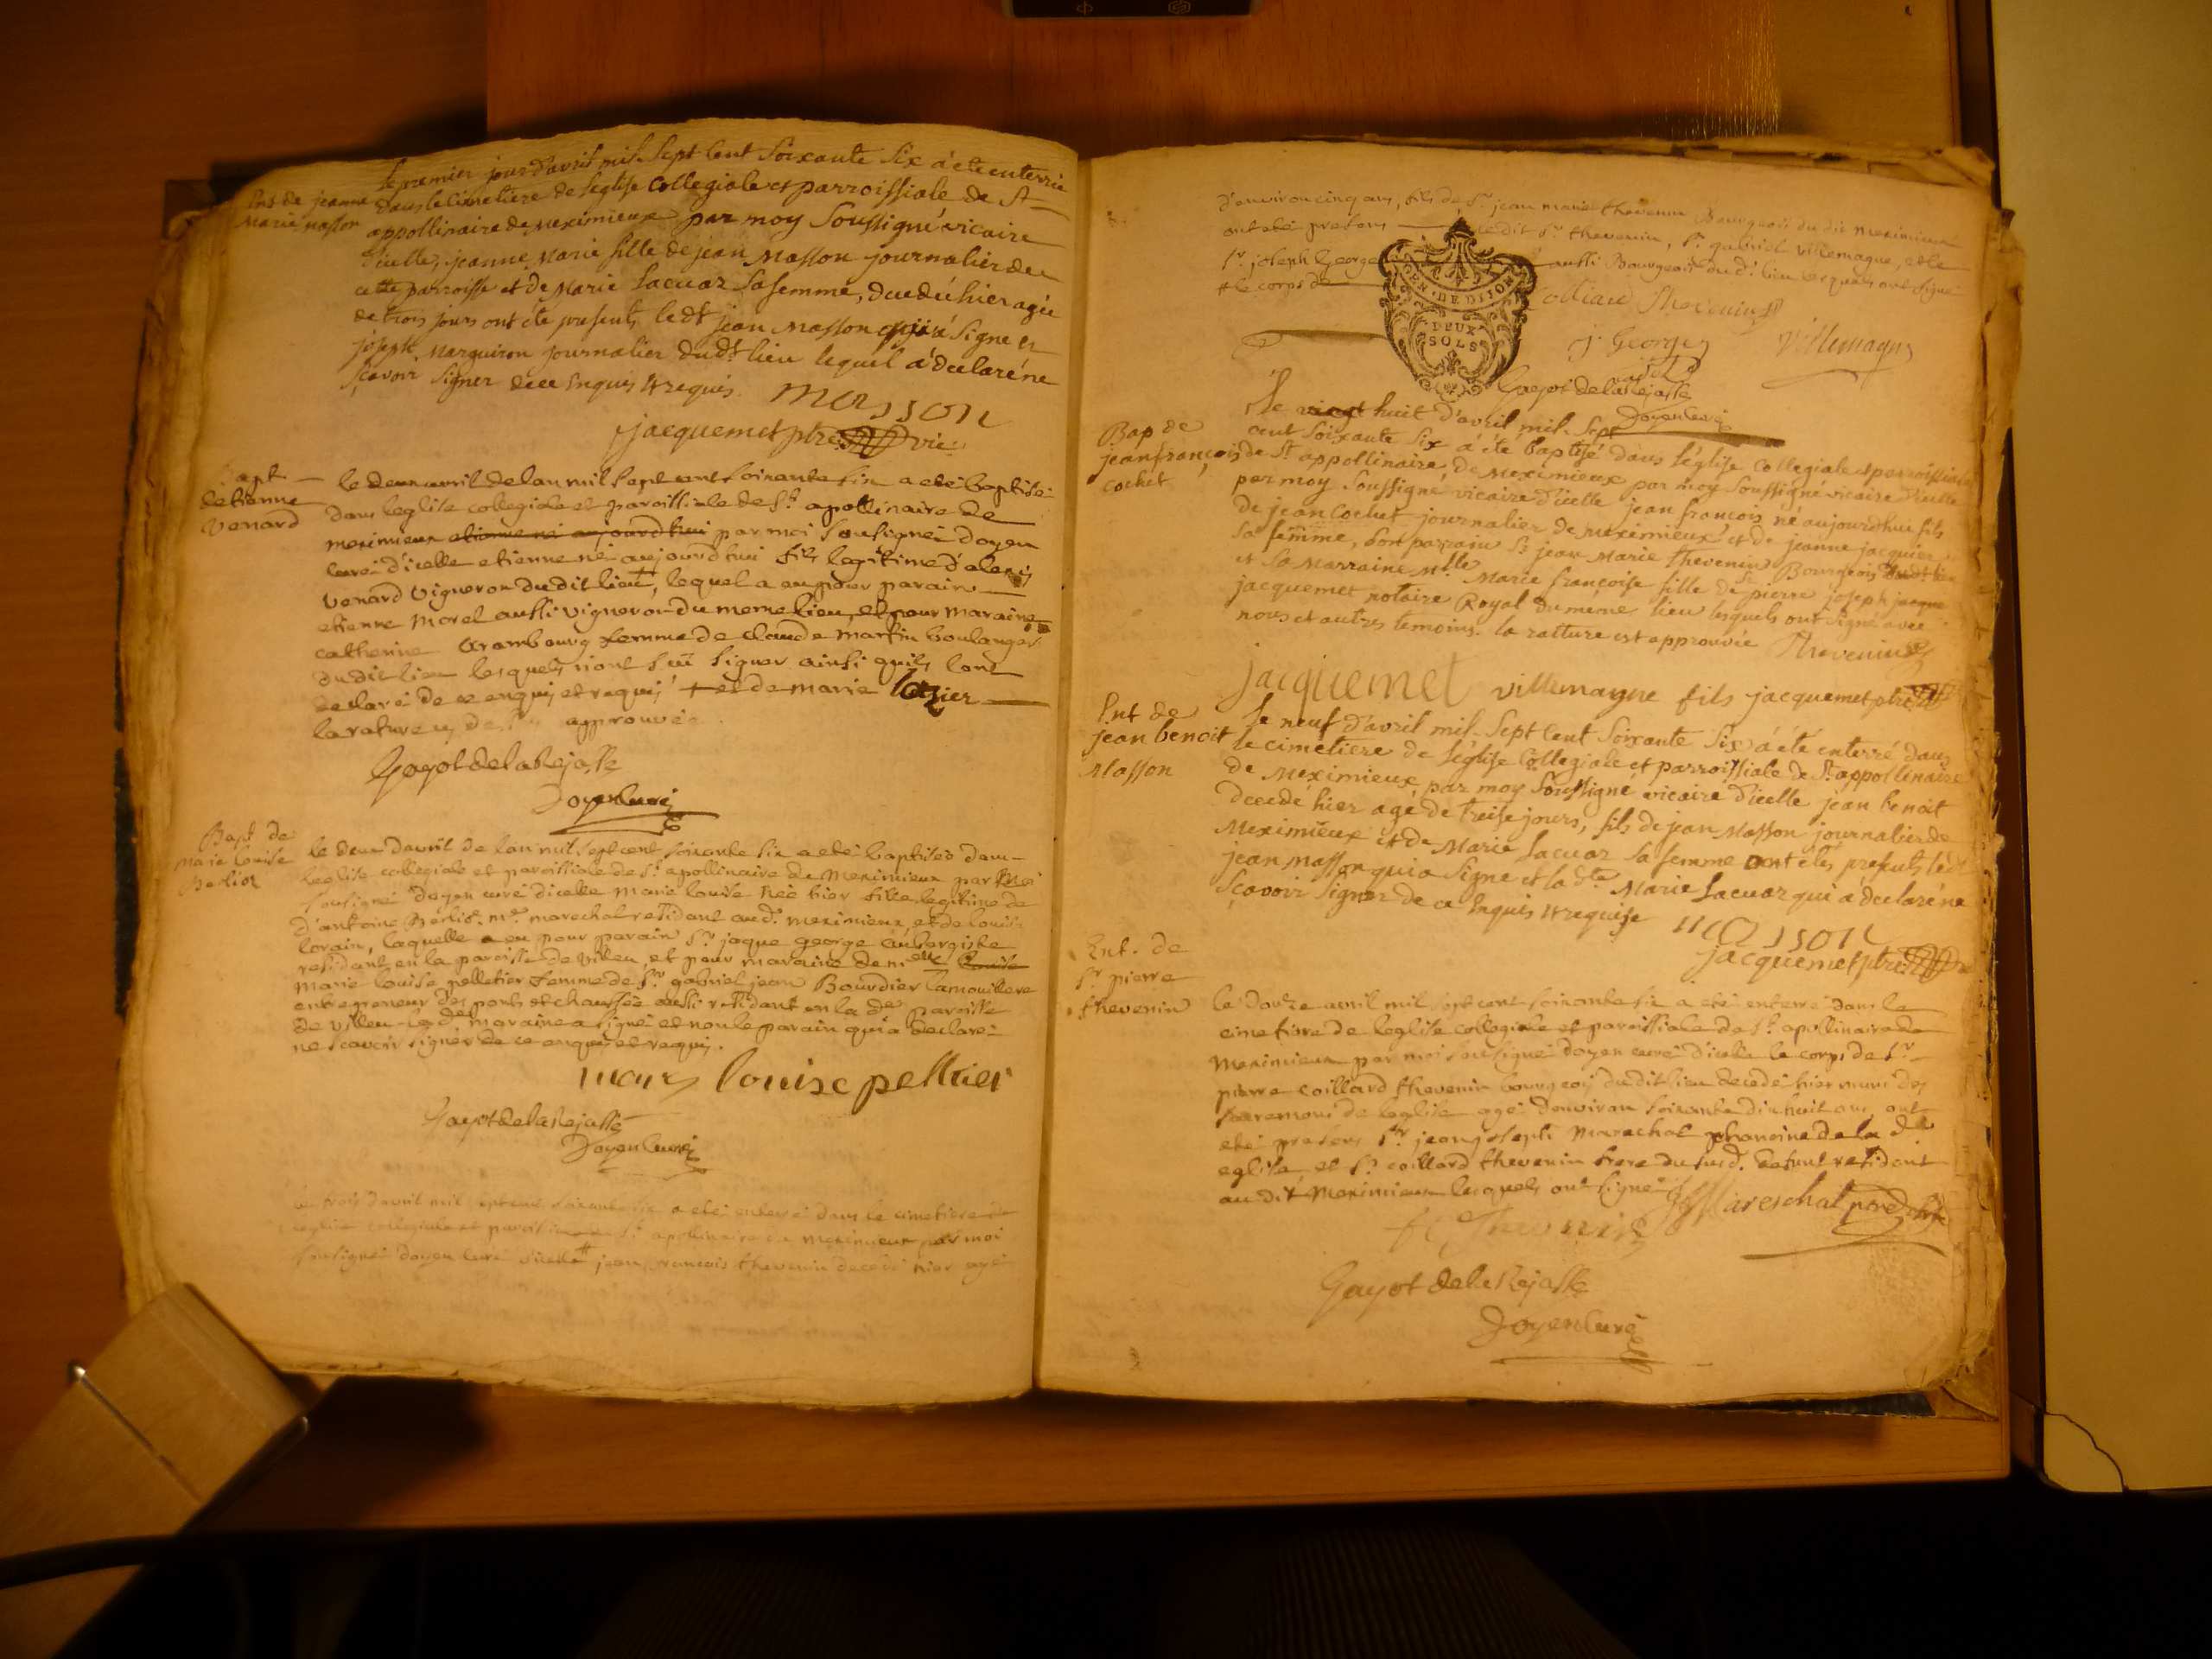 Ent de jeanne
Marie Masson
le premier jour d'avril mil Sept Cent Soixante Six a été enterrée
dans le cimetiere de l'eglise Collegiale et parroissiale de St
appollinaire de meximieux par moy Soussigné vicaire
d'icelle, jeanne Marie fille de jean Masson journalier de
cette parroisse et de Marie Lacuaz sa femme, decedé hier agée
de trois jours ont été presents led^t jean Masson qui a signé et
joseph Marguiron journalier dud^t lieu lequel a declaré ne
scavoir signer de ce enquis et requis.
masson
jacquemet ptre vic.
Bapt
detienne
Venard
le deux avril de lan mil sept cent soixante six a eté baptisé
dans leglise collegiale et paroissiale de S^t apollinaire de
meximieux etienne né aujourd'hui par moi sousigné doyen
curé d'icelle etienne né aujourd'hui fils legitime d'alexis
Venard vigneron dudit lieu +, lequel a eu pour parain
etienne Morel aussi vigneron du meme lieu, et pour maraine
catherine Arambourg femme de claude martin boulanger
dudit lieu lesquels n'ont sçu signer ainsi quils l'ont
declaré de ce enquis et requis + et de marie lozier
la rature approuvée
Gayot de la Rejasse
Doyen Curé
Bapt de
marie louise
Berlioz
le deux davril de lan mil sept cent soixante six a eté baptisée dans
leglise collegiale et paroissiale de S^t apollinaire de Meximieux par moi
sousigné doyen curé d'icelle marie louise née hier fille legitime de
d'antoine Berlioz m^e marechal residant aud^t meximieux, et de louise
lorain, laquelle a eu pour parain S^r jaque george aubergiste
residant en la paroisse de villeu, et pour maraine dem^elle louise
marie louise pelletier femme de S^r gabriel jean Bourdier lamouillere
entrepreneur des ponts et chaussée aussi residant en la d^e paroisse
de villeu. la d^e maraine a signé et non le parain qui a declaré
ne scavoir signer de ce enquis et requis.
marie louise pelltier
Gayot de la Rejasse
Doyen Curé
le trois davril mil sept cent soixante six a eté enterré dans le cimetiere de
leglise collegiale et paroissiale de S^t apollinaire de meximieux par moi
sousigné doyen curé d'icelle # jean francois thevenin decedé hier agé
d'environ cinq ans, fils de S^r jean marie thevenin Bourgeois du dit meximieux
ont eté presens ledit S^r thevenin, S^r gabriel villemagne, et le
S^r joseph George aussi Bourgeois dud^t lieu lesquels ont signé
# le corps de
GEN. DE DIJON
DEUX
SOLS
Colliard Thevenin
j. George
villemagne
Gayot de la Rejasse
Doyen Curé
Bap de
jean françois
cochet
le vingt huit d'avril mil Sept
cent soixante six a été baptisé dans l'église collegiale et parroissiale
de St appollinaire de meximieux par moy soussigné vicaire d'icelle
par moy Soussigné vicaire d'icelle jean francois né aujourdhui fils
de jean Cochet journalier de meximieux et de jeanne jacquier
sa femme, son parrain S^r jean Marie thevenin Bourgeois dud^t lieu
et sa marraine m^lle Marie françoise fille de S^r pierre joseph jacque
jacquemet notaire Royal du meme lieu lesquels ont signé avec
nous et autres temoins. la ratture est approuvée
Thevenin
jacquemet villemagne fils jacquemet ptre
Ent de
jean benoit
Masson
le neuf d'avril mil Sept Cent Soixante Six a été enterré dans
le cimetiere de l'église Collegiale et parroissiale de St appollinaire
de Meximieux, par moy Soussigné vicaire d'icelle jean benoit
decedé hier agé de treise jours, fils de jean Masson journalier de
Meximieux et de Marie Lacuaz sa femme ont étés presents led^t
jean Masson qui a signé et la d^te Marie Lacuaz qui a declaré ne
sçavoir signer de ce Enquis et requise
masson
jacquemet ptre
Ent. de
S^r pierre
thevenin
le douze avril mil sept cent soixante six a eté enterré dans le
cimetiere de leglise collegiale et paroissiale de S^t apollinaire de
Meximieux par moi sousigné doyen curé d'icelle le corps de S^r
pierre coillard thevenin bourgeois dudit lieu decedé hier muni des
sacremens de leglise agé denviron soixante dix huit ans, ont
eté presens S^r jean joseph Marechal chanoine de la d^e
eglise, et S^r coillard thevenin frere du susd^t defunt residant
au dit Meximieux lesquels ont signé
Mareschal ptre
Thevenin
Gayot de la Rejasse
Doyen Curé